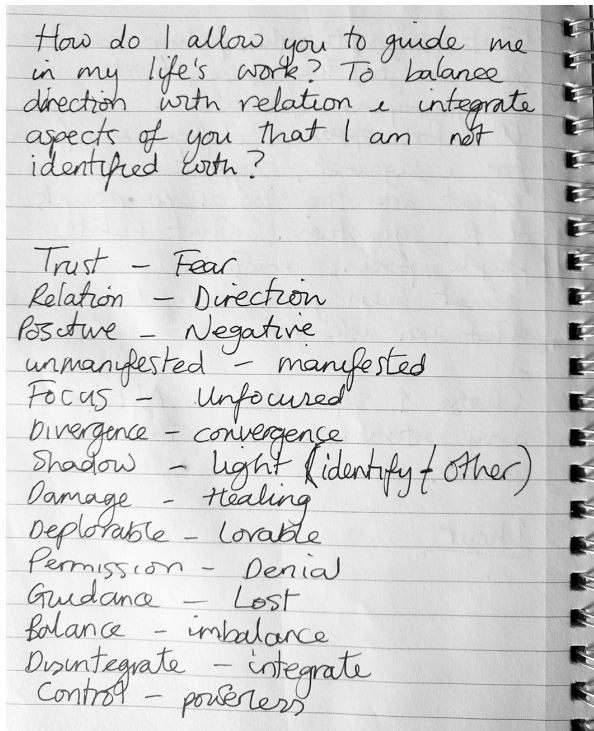 How do I allow you to guide me
in my life's work? To balance
direction with relation & integrate
aspects of you that I am not
identified with?
Trust - Fear
Relation - Direction
Positive - Negative
unmanifested - manifested
Focus - Unfocused
Divergence - convergence
Shadow - light (identify + other)
Damage - Healing
Deplorable - Lovable
Permission - Denial
Guidance - Lost
Balance - imbalance
Disintegrate - integrate
Control - powerless